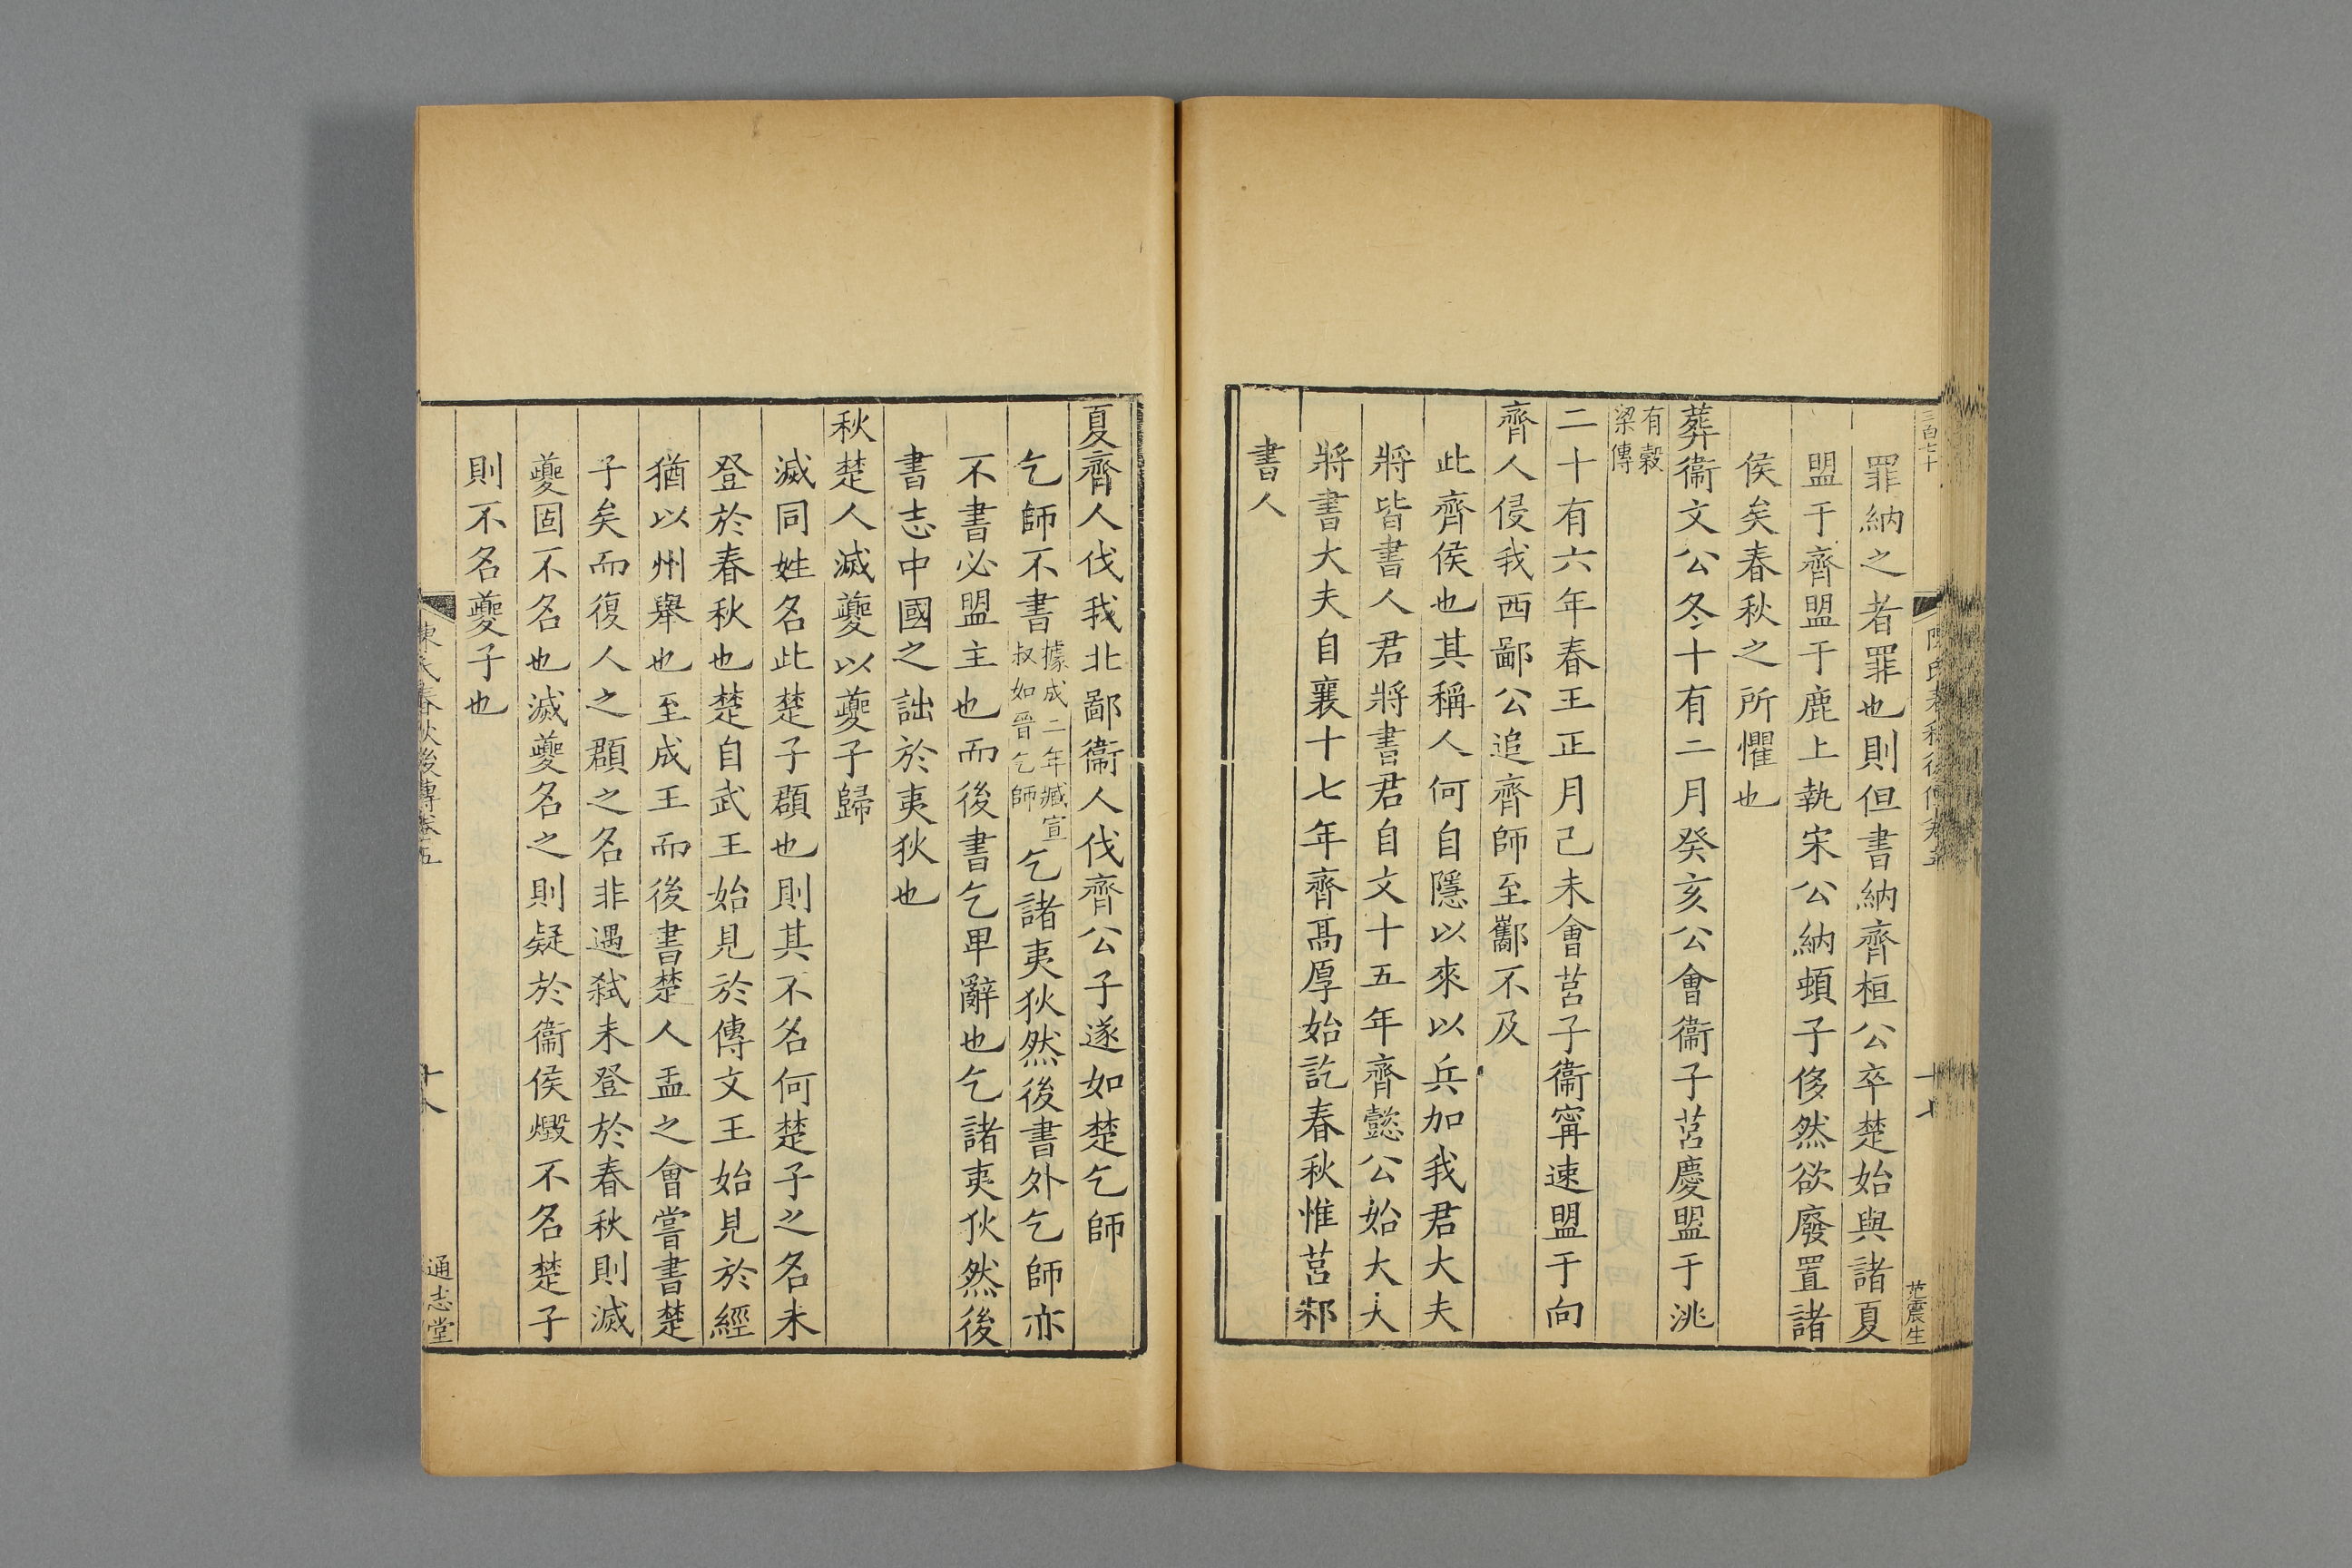 三百七十
陳氏春秋後傳卷五
十七
范震生
罪納之者罪也則但書納齊桓公卒楚始與諸夏
盟于齊盟于鹿上執宋公納頓子侈然欲廢置諸
侯矣春秋之所懼也
葬衞文公冬十有二月癸亥公會衞子莒慶盟于洮
有穀
梁傳
二十有六年春王正月己未會莒子衞甯速盟于向
齊人侵我西鄙公追齊師至酅不及
此齊侯也其稱人何自隱以來以兵加我君大夫
將皆書人君將書君自文十五年齊懿公始大夫
將書大夫自襄十七年齊高厚始訖春秋惟莒邾
書人
夏齊人伐我北鄙衞人伐齊公子遂如楚乞師
乞師不書據成二年臧宣叔如晉乞師乞諸夷狄然後書外乞師亦
不書必盟主也而後書乞卑辭也乞諸夷狄然後
書志中國之詘於夷狄也
秋楚人滅夔以夔子歸
滅同姓名此楚子頵也則其不名何楚子之名未
登於春秋也楚自武王始見於傳文王始見於經
猶以州舉也至成王而後書楚人盂之會嘗書楚
子矣而復人之頵之名非遇弑未登於春秋則滅
夔固不名也滅夔名之則疑於衞侯燬不名楚子
則不名夔子也
陳氏春秋後傳卷五
十八
通志堂